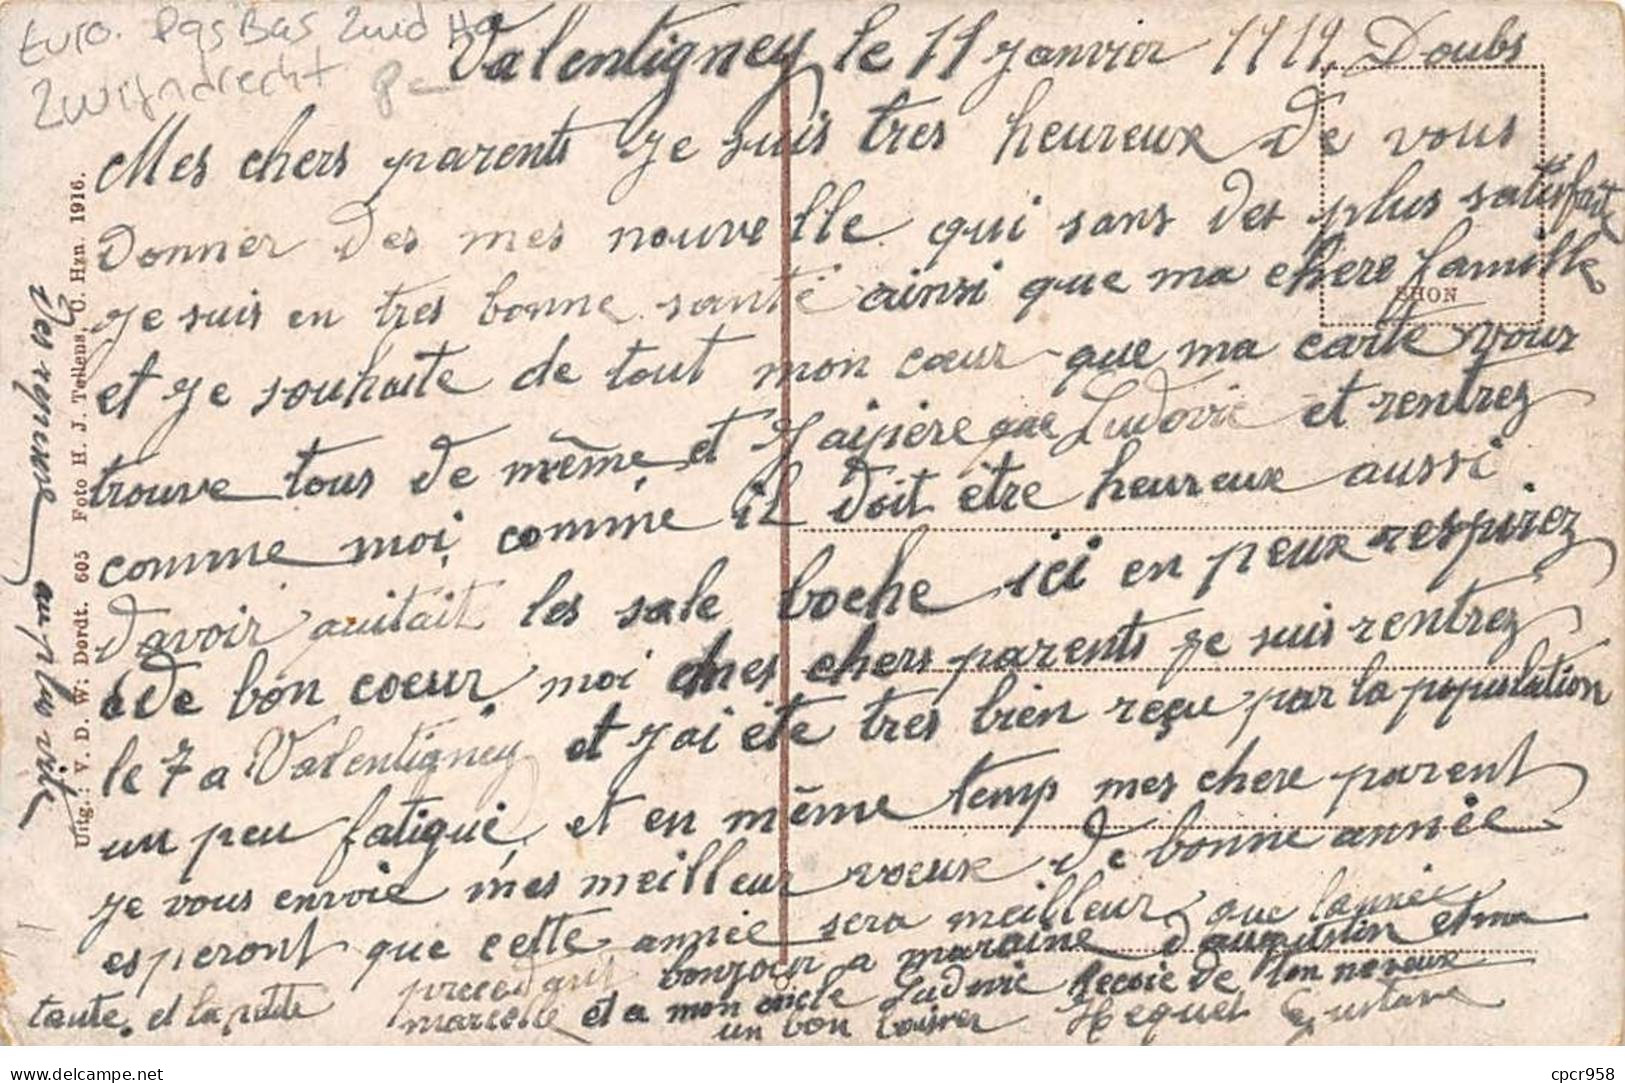 Euro. Pas Bas Zuid Ha
Zwijndrecht
Valentigney le 11 Janvier 1919. Doubs
Mes chers parents Je suis tres heureux de vous
donner des mes nouvelle qui sans des plus satisfait
Je suis en tres bonne santé ainsi que ma chere famille
et Je souhaite de tout mon cœur que ma carte vous
trouve tous de même et J'aispère que Ludovic et rentrez
comme moi comme il doit être heureux aussi
davoir quitait les sale boche ici en peux respirez
de bon coeur moi mes chers parents je suis rentrez
le 7 a Valentigney et J'ai été tres bien reçu par la population
un peu fatigué et en même temp mes chere parent
Je vous envoie mes meilleur voeux de bonne année
esperont que cette année sera meilleur que lannée
precedant bonjour a maraine d'augustin et ma
tante et la petite marcelle et a mon oncle Ludovic Recoie de ton neveux
un bon baiser Hequet Gustave
au plus vite
Uitg.: V. D. W: Dordt. 605 Foto H. J. Tollens, C. Hzn. 1916.
SHON
delcampe.net
cpcr958